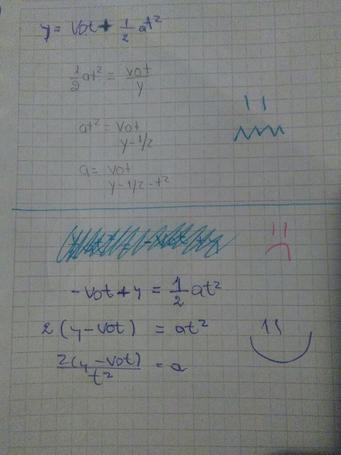 y = vot + 1/2 at²
1/2 at² = vot/y
at² = vot/y-1/2
a = vot/y-1/2-t²
-vot+y = 1/2 at²
2(y-vot) = at²
2(y-vot)/t² = a